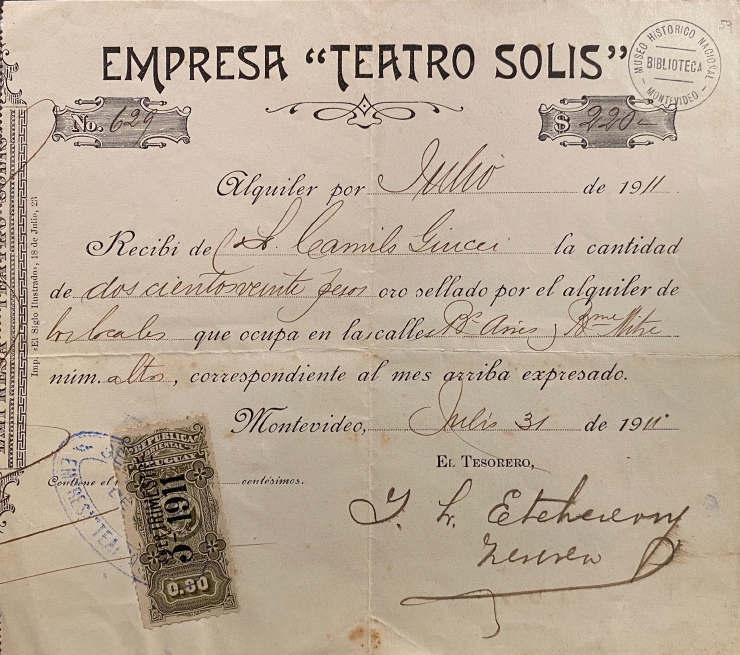 EMPRESA "TEATRO SOLIS"
MUSEO HISTORICO NACIONAL
BIBLIOTECA
MONTEVIDEO
No. 629
$ 220-
Alquiler por Julio de 1911
Recibí de Camilo Giucci la cantidad
de doscientos veinte pesos oro sellado por el alquiler de
los locales que ocupa en las calles Bs Aires y Bme Mitre
núm. altos, correspondiente al mes arriba expresado.
Montevideo, Julio 31 de 1911
EL TESORERO,
Contiene el centésimos.
REPUBLICA
ORIENTAL
URUGUAY
1911
0.30
Etcheverry
Imp. «El Siglo Ilustrado», 18 de Julio, 23